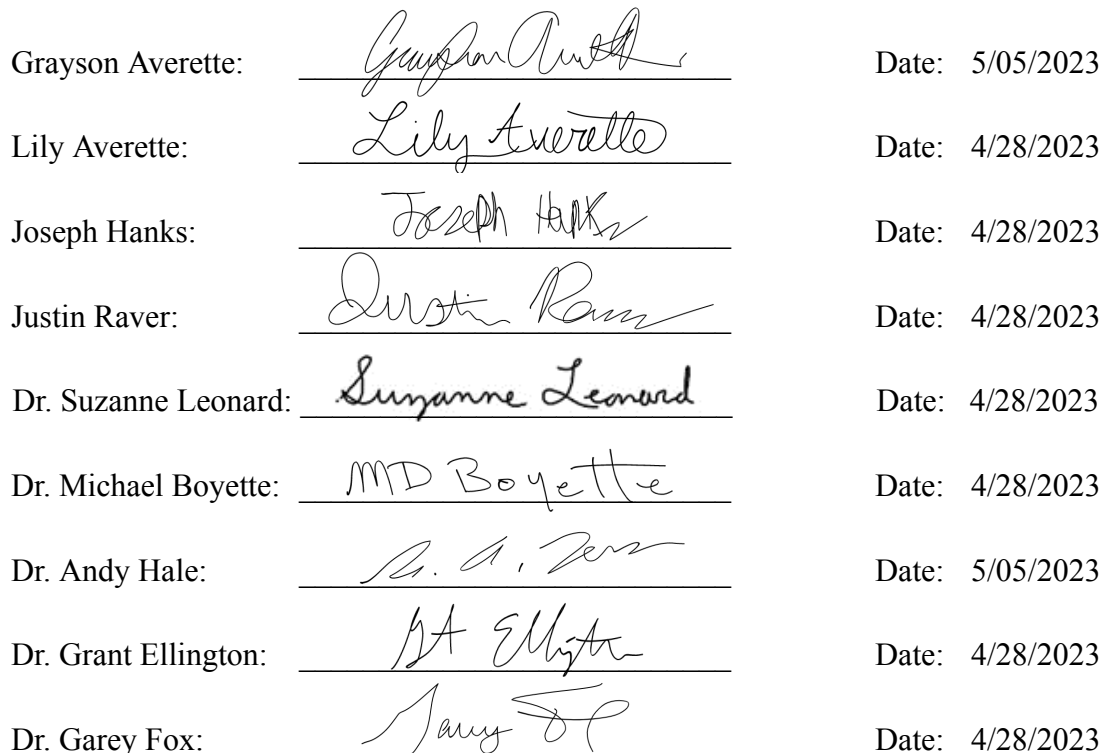 Grayson Averette: Grayson Date: 5/05/2023
Lily Averette: Lily Averette Date: 4/28/2023
Joseph Hanks: Joseph Hanks Date: 4/28/2023
Justin Raver: Justin Date: 4/28/2023
Dr. Suzanne Leonard: Suzanne Leonard Date: 4/28/2023
Dr. Michael Boyette: MD Boyette Date: 4/28/2023
Dr. Andy Hale: Date: 5/05/2023
Dr. Grant Ellington: Date: 4/28/2023
Dr. Garey Fox: Date: 4/28/2023